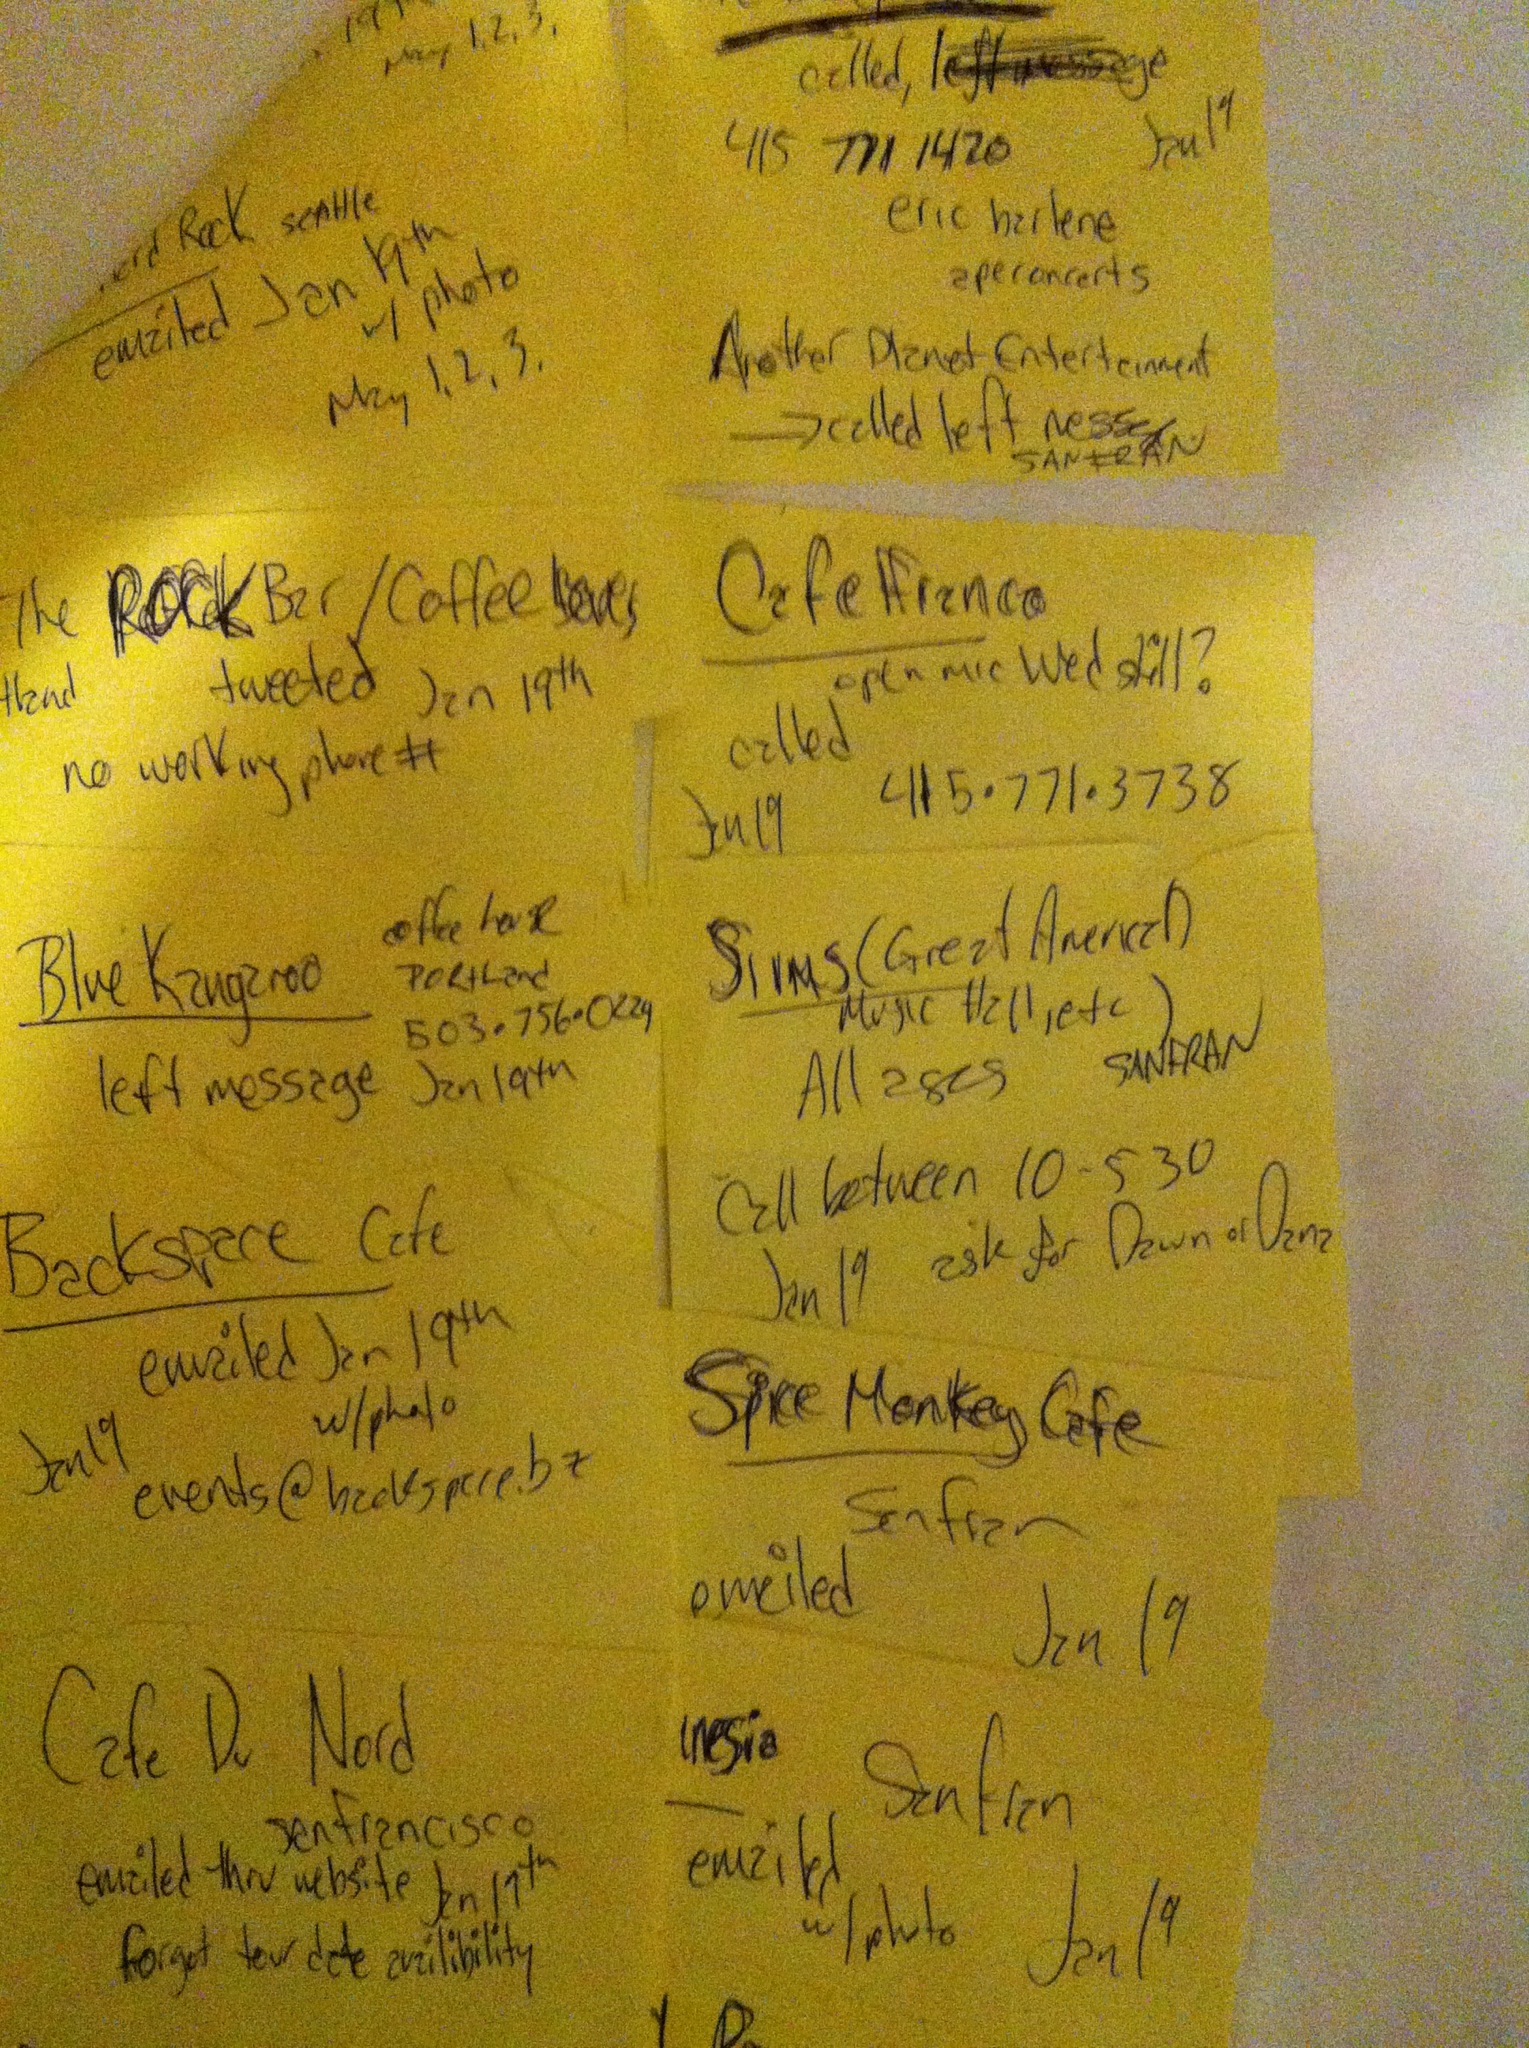 19th
May 1, 2, 3.
Rock seattle
emailed Jan 19th
w/ photo
May 1, 2, 3.
The ROCK Bar / Coffee
tland tweeted Jan 19th
no working phone #
Blue Kangaroo
coffee house
PORTLand
503.756.0224
left message Jan 19th
Backspace Cafe
emailed Jan 19th
w/photo
Jan 19
events@backspace.bz
Cafe Du Nord
sanfrancisco
emailed thru website Jan 19th
forgot tour date availibility
called, left message
415 771 1420 Jan 19
eric harlene
apeconcerts
Another Planet Entertainment
→ called left
SANFRAN
Cafe Franco
open mic Wed still?
called
Jan 19 415.771.3738
Slims (Great American
Music Hall, etc)
All ages SANFRAN
Call between 10-530
Jan 19 ask for Dawn or Dana
Spice Monkey Cafe
Sanfran
emailed
Jan 19
Sanfran
emailed
w/photo Jan 19